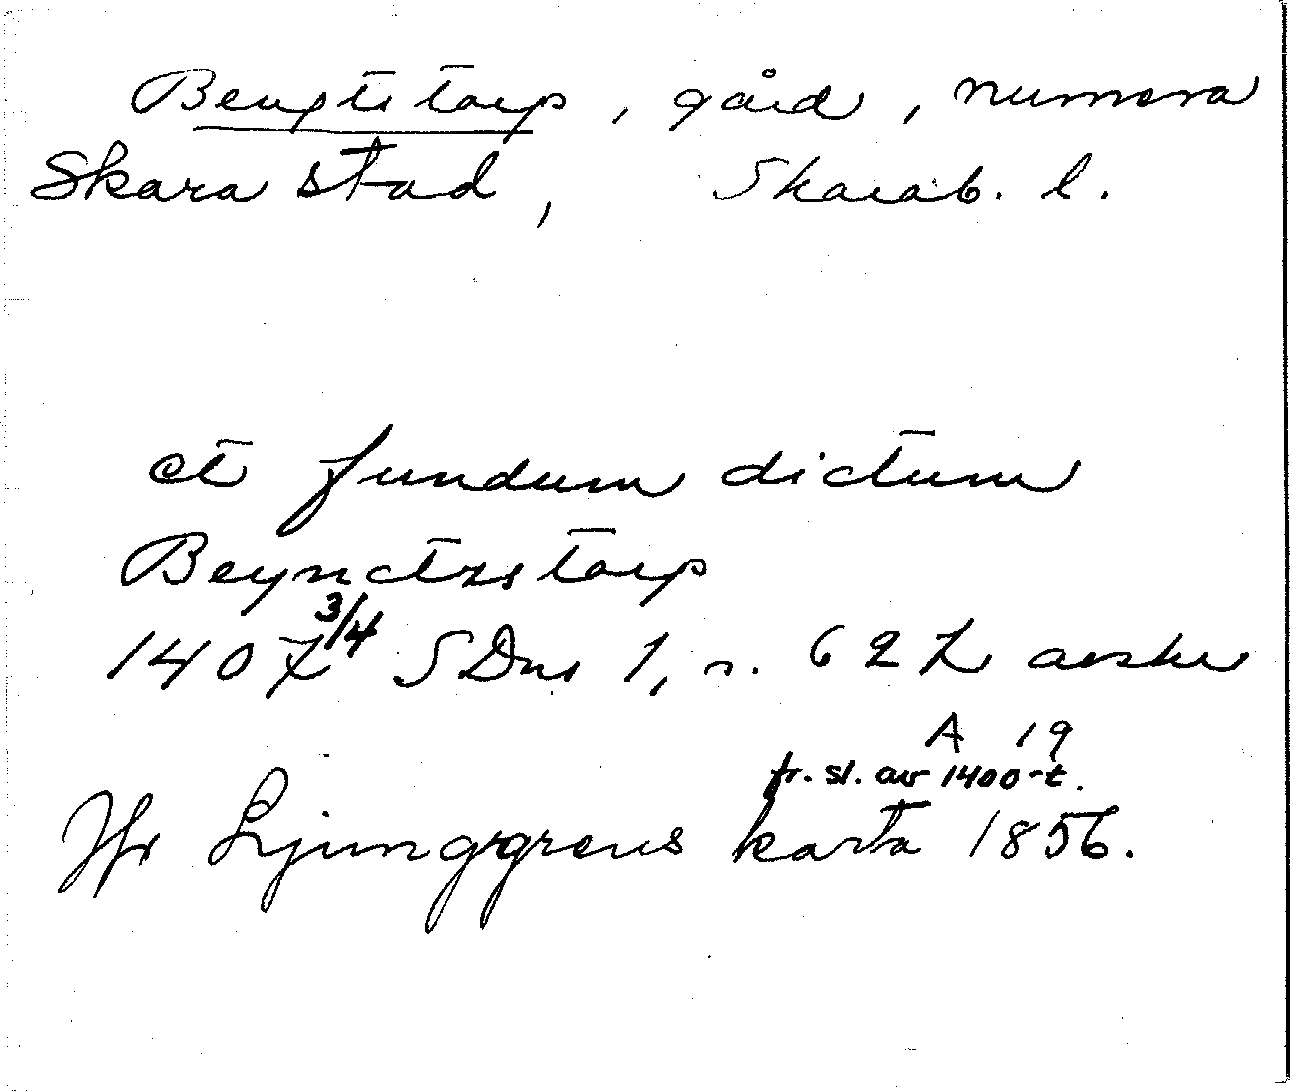 Bengtstorp, gård, numera
Skara stad, Skarab. l.
et fundum dictum
Beynctzstorp
1407 3/4 SDns 1, s. 627 avskr
A 19
fr. sl. av 1400-t.
Jfr Ljunggrens karta 1856.